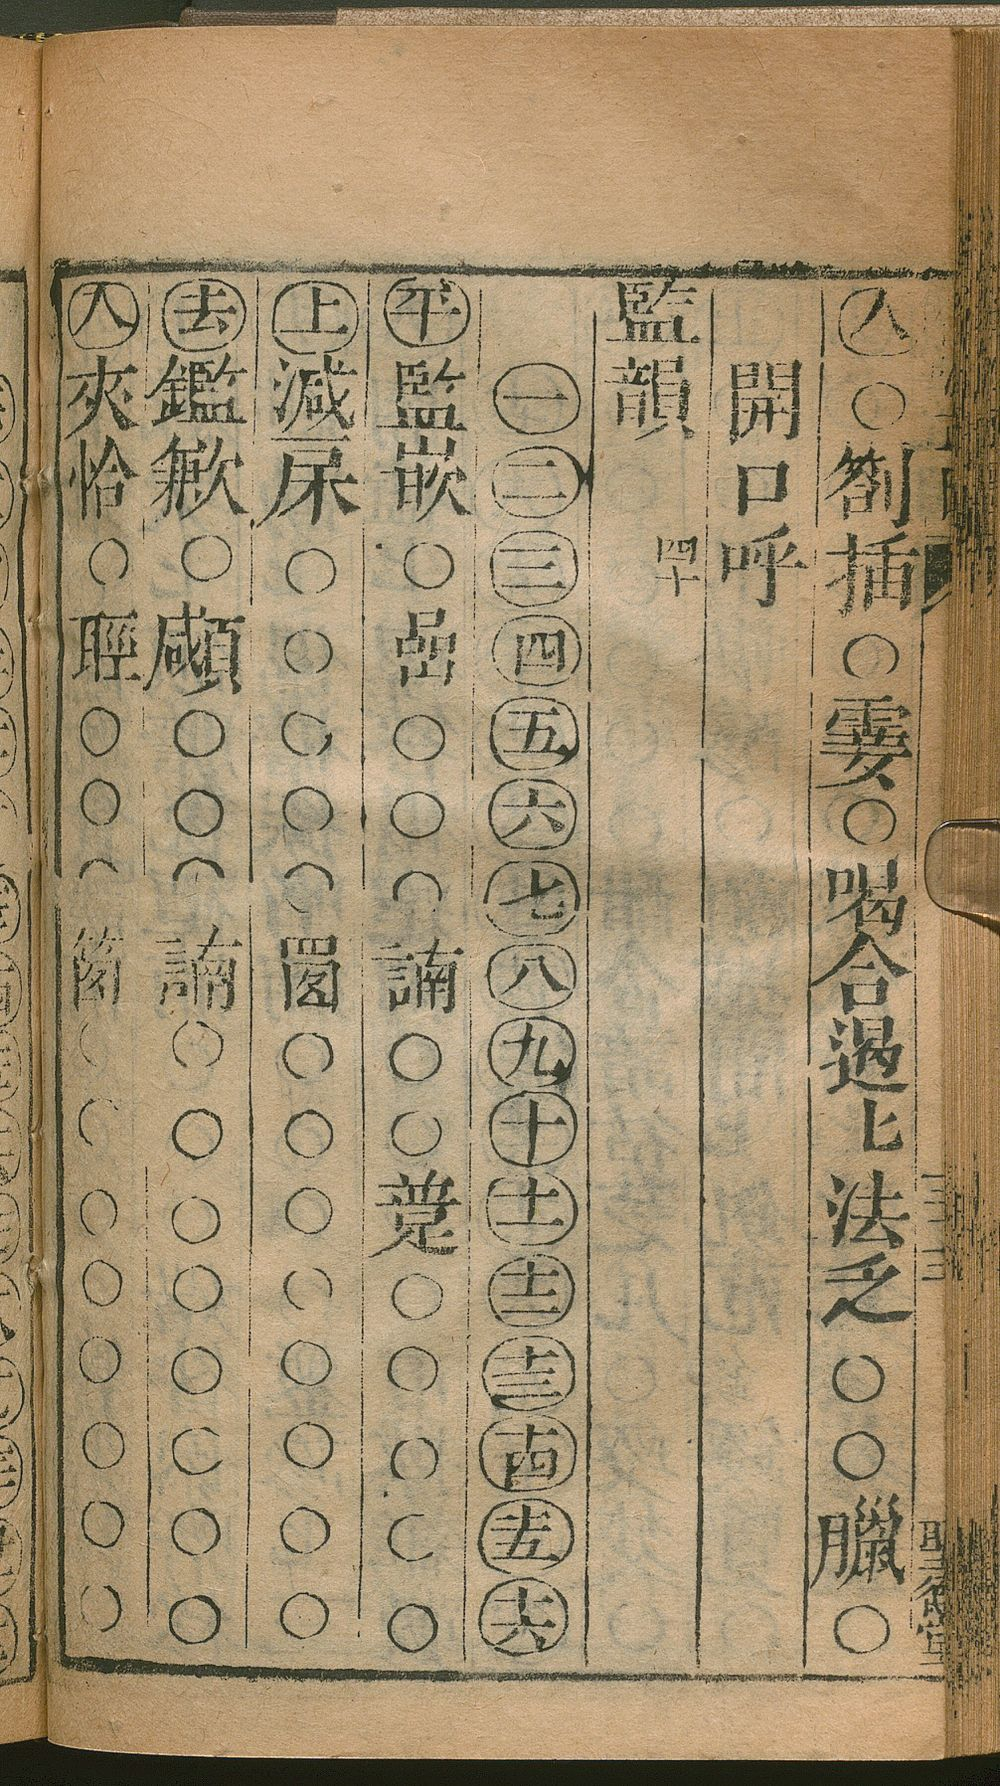 入○劄插○霎○喝合遢𠤎法乏○○臘○
開口呼
監韻 四十
一二三四五六七八九十十一十二十三十四十五十六
平監嵌○嵒○○○諵○○䒦○○○○○
上減㞒○○○○○㘝○○○○○○○○
去鑑歉○顑○○○諵○○○○○○○○
入夾恰○䀴○○○䈫○○○○○○○○